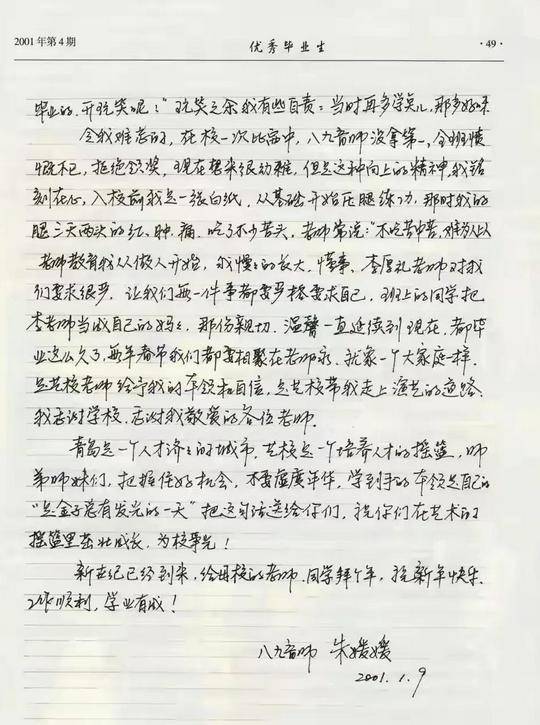 2001年第4期
优秀毕业生
·49·
毕业的,开玩笑呢:"玩笑之余我有些自责:当时再多学点儿,那多好呀
令我难忘的,在校一次比赛中,八九音师没拿第一,全班愤
慨不已,拒绝领奖,现在想来很幼稚,但是这种向上的精神,我铭
刻在心,入校前我是一张白纸,从基础开始压腿练功,那时我的
腿三天两头的红、肿、痛,吃了不少苦头,老师常说:"不吃苦中苦,难为人上
老师教育我从做人开始,我慢慢的长大,懂事、李厚礼老师对我
们要求很严,让我们每一件事都要严格要求自己,班上的同学把
李老师当成自己的妈妈,那份亲切、温馨一直延续到现在,都毕
业这么久了,每年春节我们都要相聚在老师家,就象一个大家庭一样,
是艺校老师给予我的本领和自信,是艺校带我走上演艺的道路
我感谢学校,感谢我敬爱的各位老师.
青岛是一个人才济济的城市,艺校是一个培养人才的摇篮,师
弟师妹们,把握住好机会,不要虚度年华,学到手的本领是自己的
"是金子总有发光的一天"把这句话送给你们,祝你们在艺术的
摇篮里茁壮成长,为校争光!
新世纪已经到来,给母校的老师、同学拜个年,祝新年快乐
工作顺利,学业有成!
八九音师 朱媛媛
2001.1.9